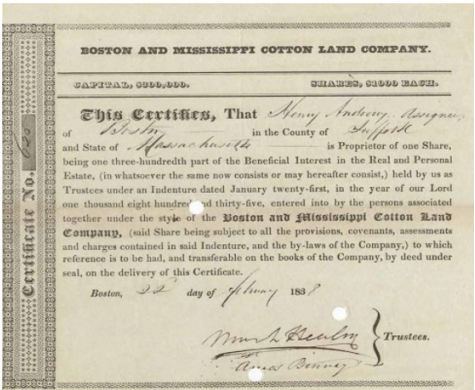 BOSTON AND MISSISSIPPI COTTON LAND COMPANY.
CAPITAL, $300,000. SHARES, $1000 EACH.
This Certifies, That Henry Andrews, Assignee
of Boston in the County of Suffolk
and State of Massachusetts is Proprietor of one Share,
being one three-hundredth part of the Beneficial Interest in the Real and Personal
Estate, (in whatsoever the same now consists or may hereafter consist,) held by us as
Trustees under an Indenture dated January twenty-first, in the year of our Lord
one thousand eight hundred and thirty-five, entered into by the persons associated
together under the style of the Boston and Mississippi Cotton Land
Company, (said Share being subject to all the provisions, covenants, assessments
and charges contained in said Indenture, and the by-laws of the Company,) to which
reference is to be had, and transferable on the books of the Company, by deed under
seal, on the delivery of this Certificate.
Boston, 22d day of February 1838
Mark Healey
Amos Binney
Trustees.
Certificate No.